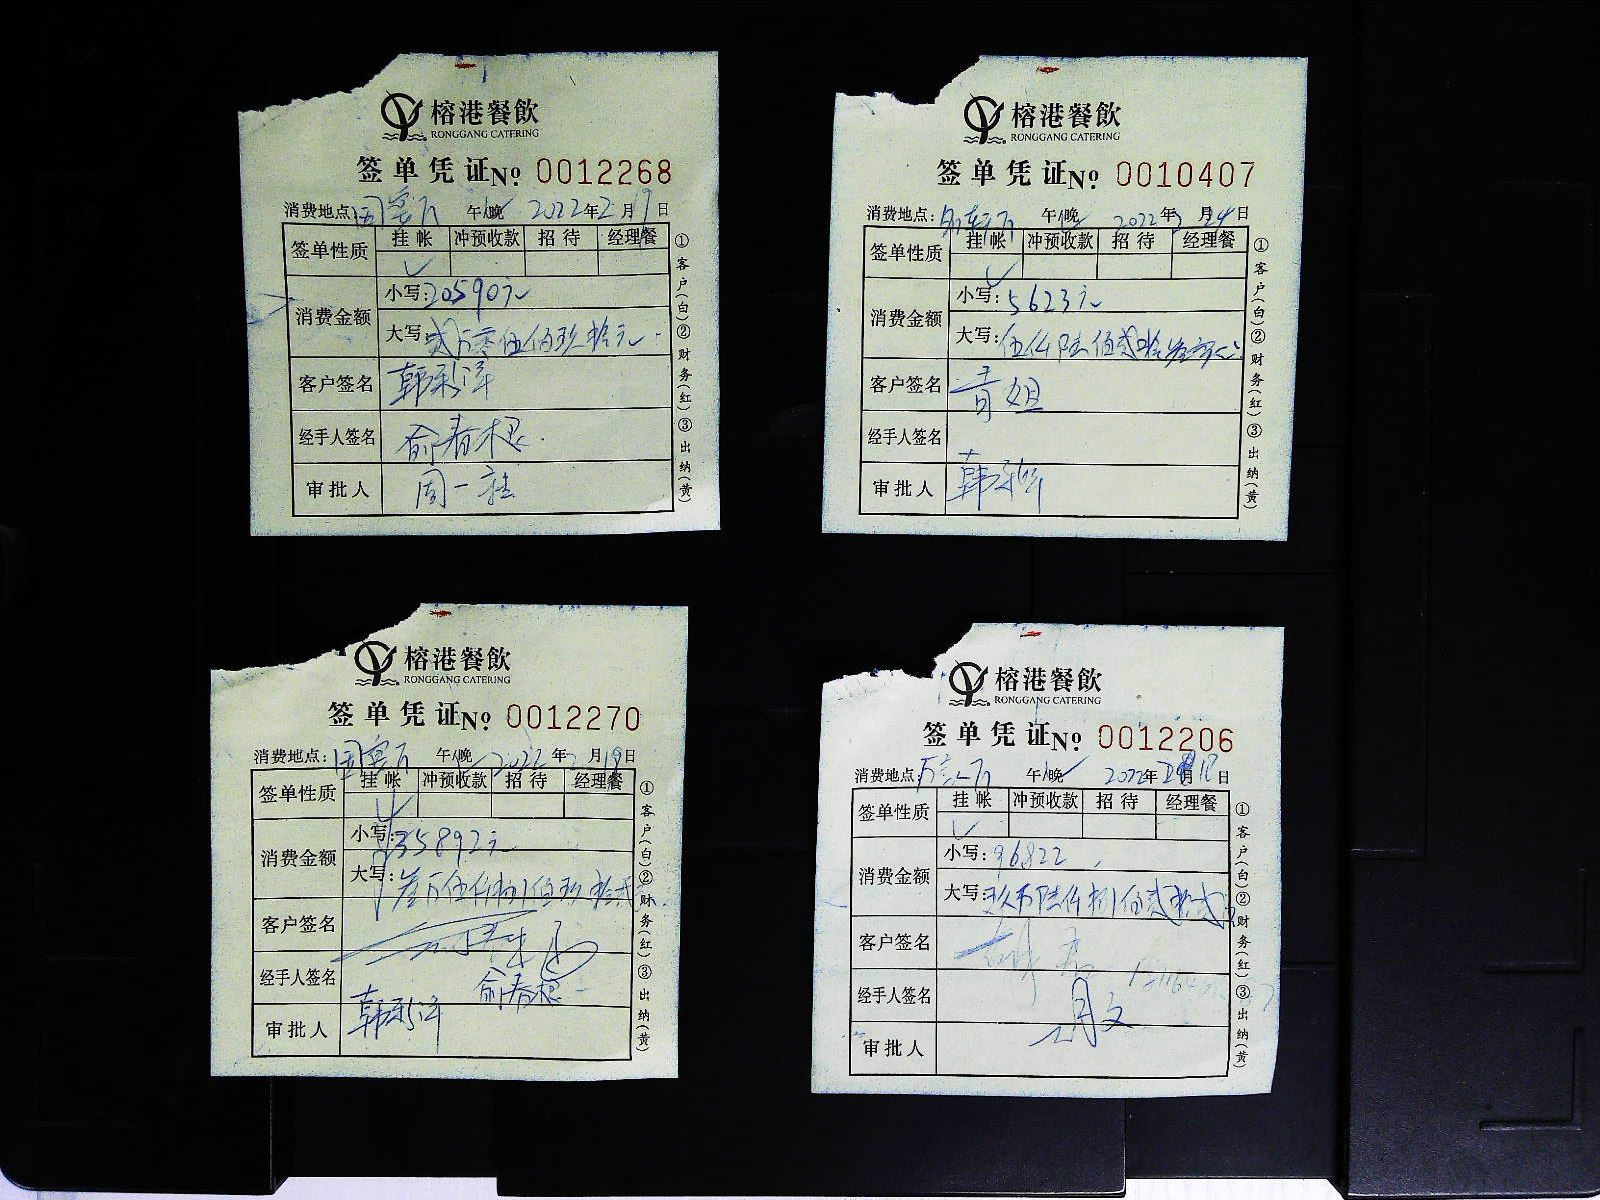 榕港餐飲
RONGGANG CATERING
签单凭证 No 0012268
消费地点: 国宾厅 午/晚 2022年2月19日
签单性质 挂帐 冲预收款 招待 经理餐
✓
消费金额 小写: 20590元
大写: 贰万零伍佰玖拾元
客户签名
经手人签名 俞春根
审批人 周一
①客户(白)②财务(红)③出纳(黄)
榕港餐飲
RONGGANG CATERING
签单凭证 No 0010407
消费地点: 午/晚 2022年 月24日
签单性质 挂帐 冲预收款 招待 经理餐
✓
消费金额 小写: 5623元
大写: 伍仟陆佰贰拾叁元
客户签名 青姐
经手人签名
审批人
①客户(白)②财务(红)③出纳(黄)
榕港餐飲
RONGGANG CATERING
签单凭证 No 0012270
消费地点: 国宾厅 午/晚 2022年2月19日
签单性质 挂帐 冲预收款 招待 经理餐
✓
消费金额 小写: 35892元
大写: 叁万伍仟捌佰玖拾贰
客户签名
经手人签名 俞春根
审批人
①客户(白)②财务(红)③出纳(黄)
榕港餐飲
RONGGANG CATERING
签单凭证 No 0012206
消费地点 午/晚 2022年2月18日
签单性质 挂帐 冲预收款 招待 经理餐
✓
消费金额 小写: 96822
大写: 玖万陆仟捌佰贰拾贰
客户签名
经手人签名
审批人
①客户(白)②财务(红)③出纳(黄)